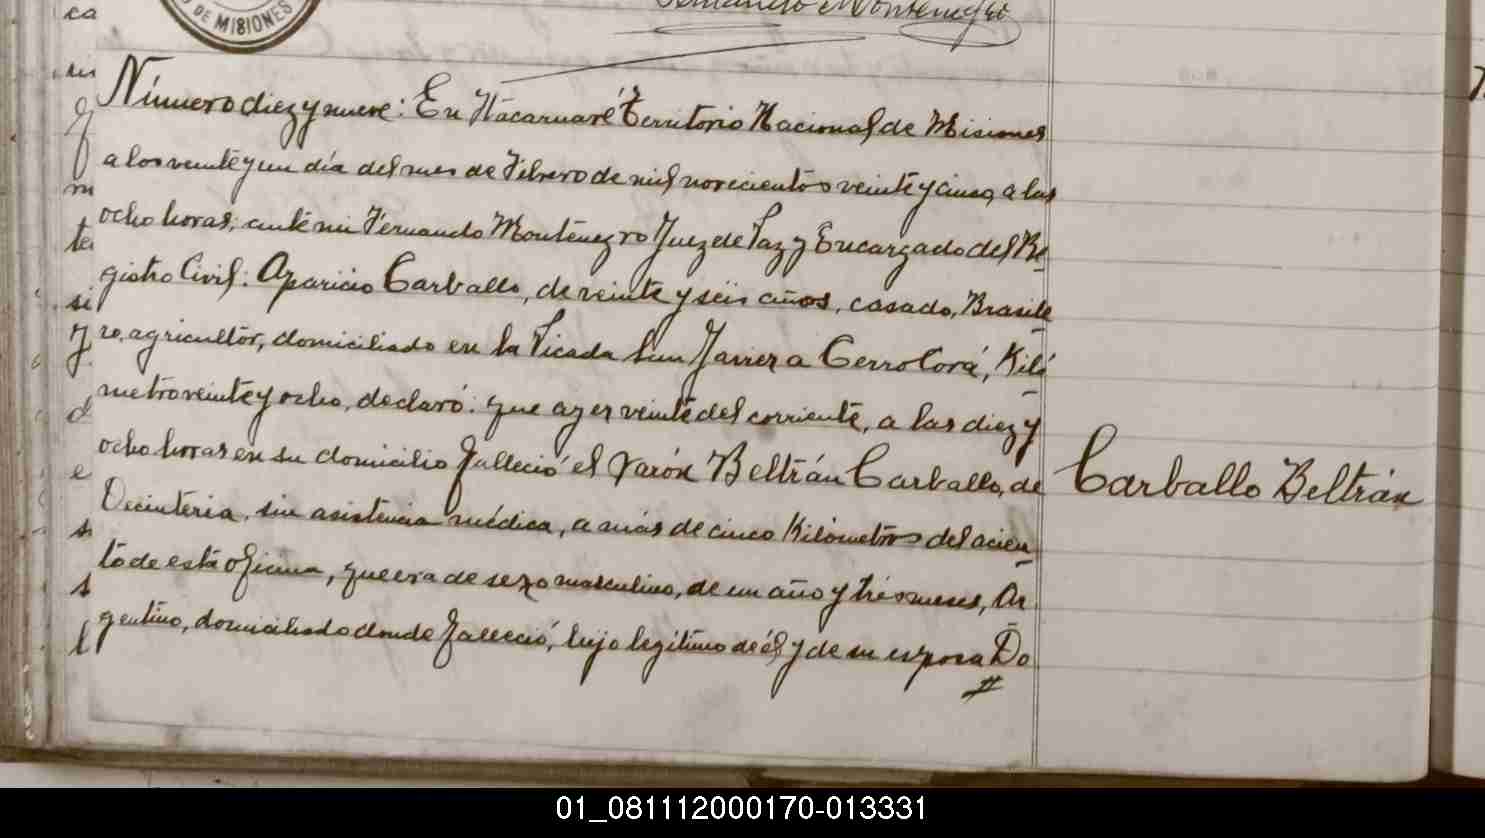 DE MISIONES
Fernando Montenegro
Número diez y nueve: En Itacaruaré Território Nacional de Misiones
a los veinte y un día del mes de Febrero de mil novecientos veinte y cinco, a las
ocho horas; ante mi Fernando Montenegro Juez de Paz y Encargado del Re
gistro Civil: Aparicio Carballo, de veinte y seis años, casado, Brasile
ro, agricultor, domiciliado en la Picada San Javier a Cerro Corá, Kiló
metro veinte y ocho, declaró: que ayer veinte del corriente, a las diez y
ocho horas en su domicilio falleció el varón Beltrán Carballo, de
Decinteria, sin asistencia médica, a más de cinco Kilómetros del acien
to de esta oficina, que era de sexo masculino, de un año y tres meses, Ar
gentino, domiciliado donde falleció, hijo legítimo de él y de su esposa Do
Carballo Beltrán
01_081112000170-013331